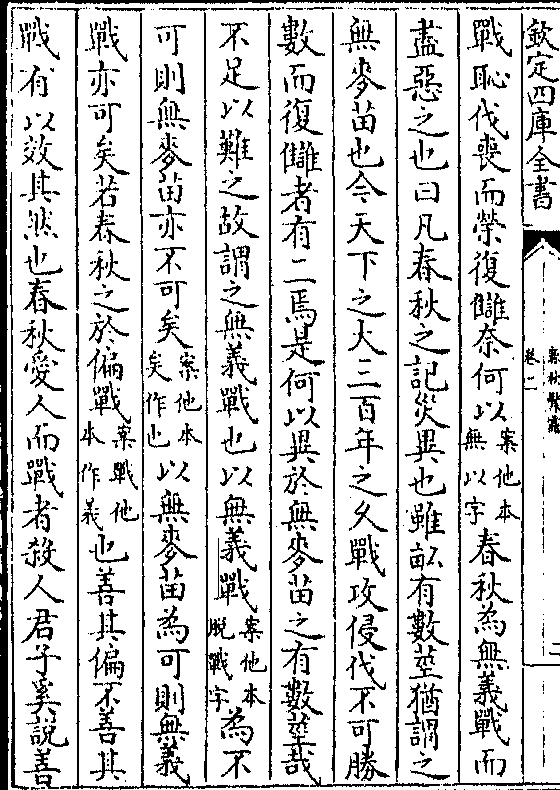 欽定四庫全書
春秋繁露
卷二
二
戰恥伐喪而榮復讎奈何以案他本無以字春秋為無義戰而
盡惡之也曰凡春秋之記災異也雖畝有數莖猶謂之
無麥苗也今天下之大三百年之久戰攻侵伐不可勝
數而復讎者有二焉是何以異於無麥苗之有數莖哉
不足以難之故謂之無義戰也以無義戰案他本脫戰字為不
可則無麥苗亦不可矣案他本矣作也以無麥苗為可則無義
戰亦可矣若春秋之於偏戰案戰他本作義也善其偏不善其
戰有以效其然也春秋愛人而戰者殺人君子奚說善